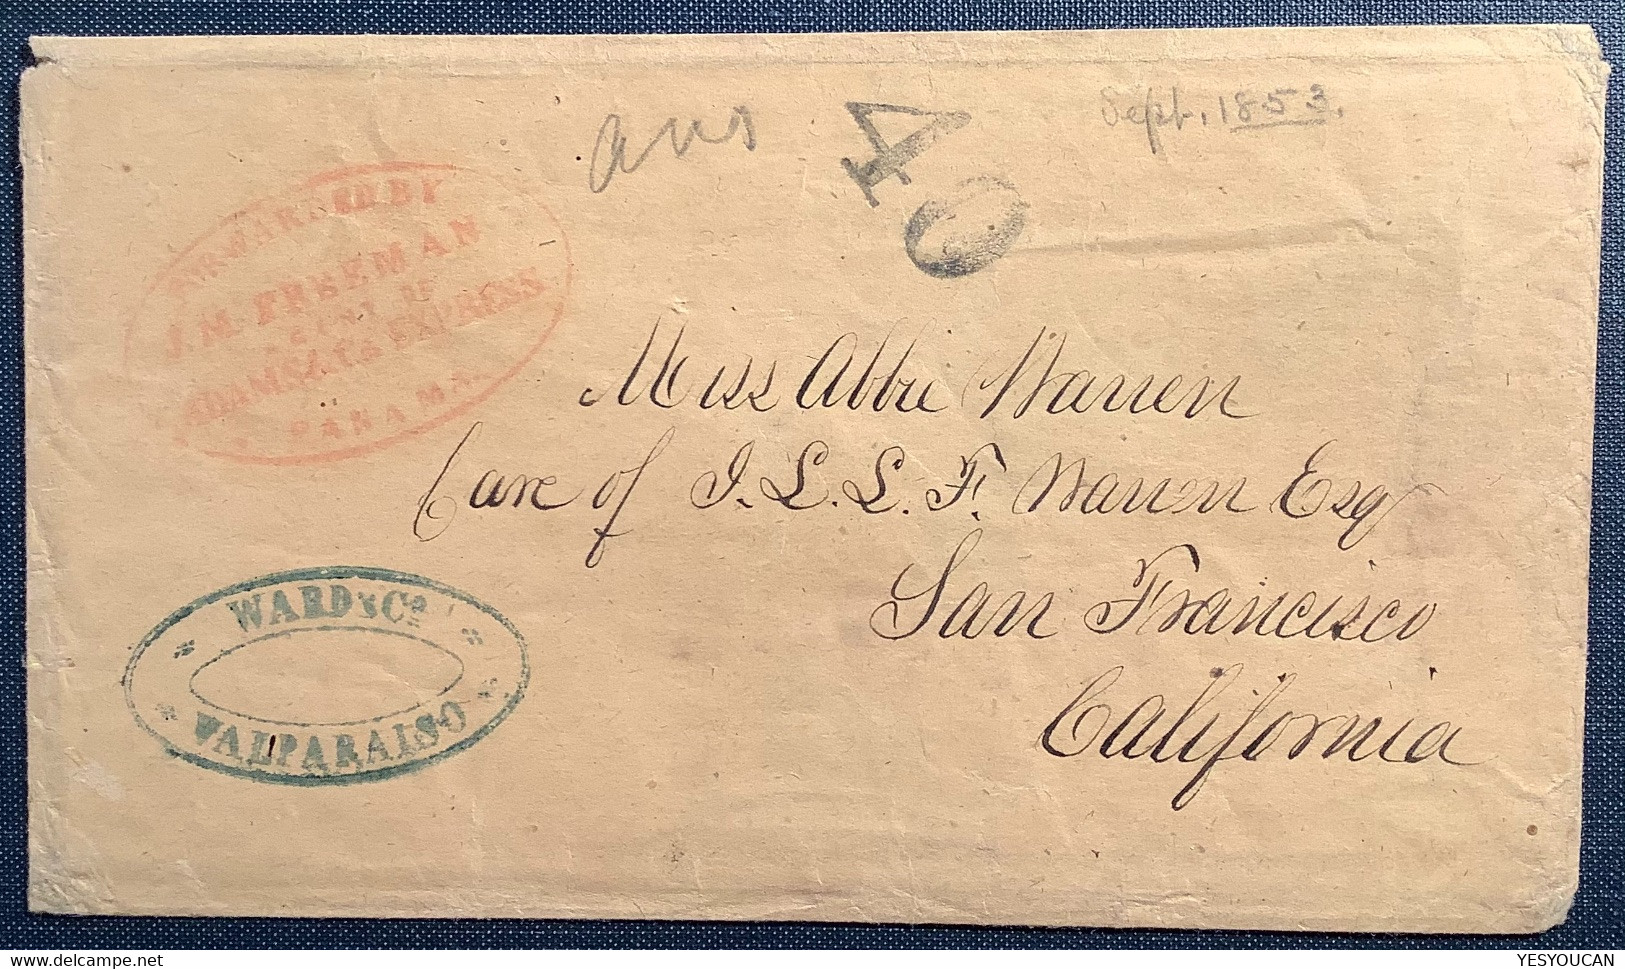 ans
40
Sept. 1853.
FORWARDED BY
J. M. FREEMAN
AGENT OF
ADAMS & Co's EXPRESS
PANAMA.
Miss Abbie Warren
Care of J. L. L. F. Warren Esq
San Francisco
California
WARD & Co.
VALPARAISO
YESYOUCAN